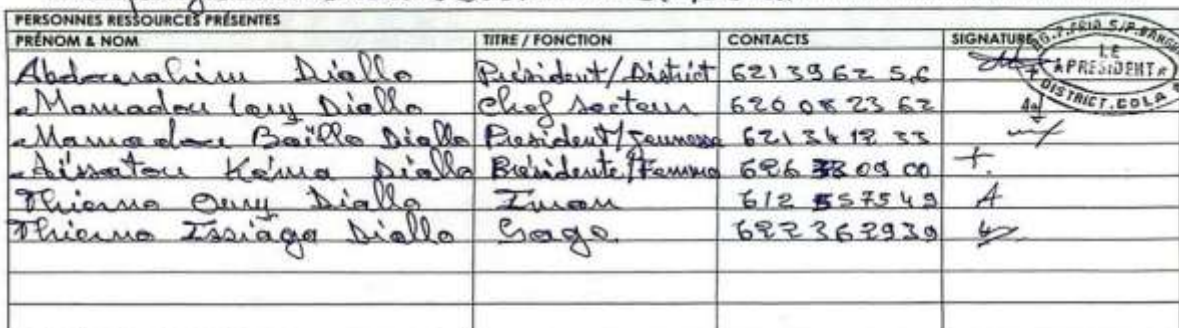 PERSONNES RESSOURCES PRÉSENTES
PRÉNOM & NOM TITRE / FONCTION CONTACTS SIGNATURE
Abdourahim Diallo Président/District 621 39 62 56
Mamadou Oury Diallo Chef Secteur 620 08 23 62
Mamadou Baïllo Diallo President/Jeunesse 621 34 12 33
Aïssatou Diallo Présidente/Femme 09 00
Thierno Oury Diallo Imam 612 557549
Thierno Issiaga Diallo Sage 622 362939
LE
PRESIDENT
DISTRICT